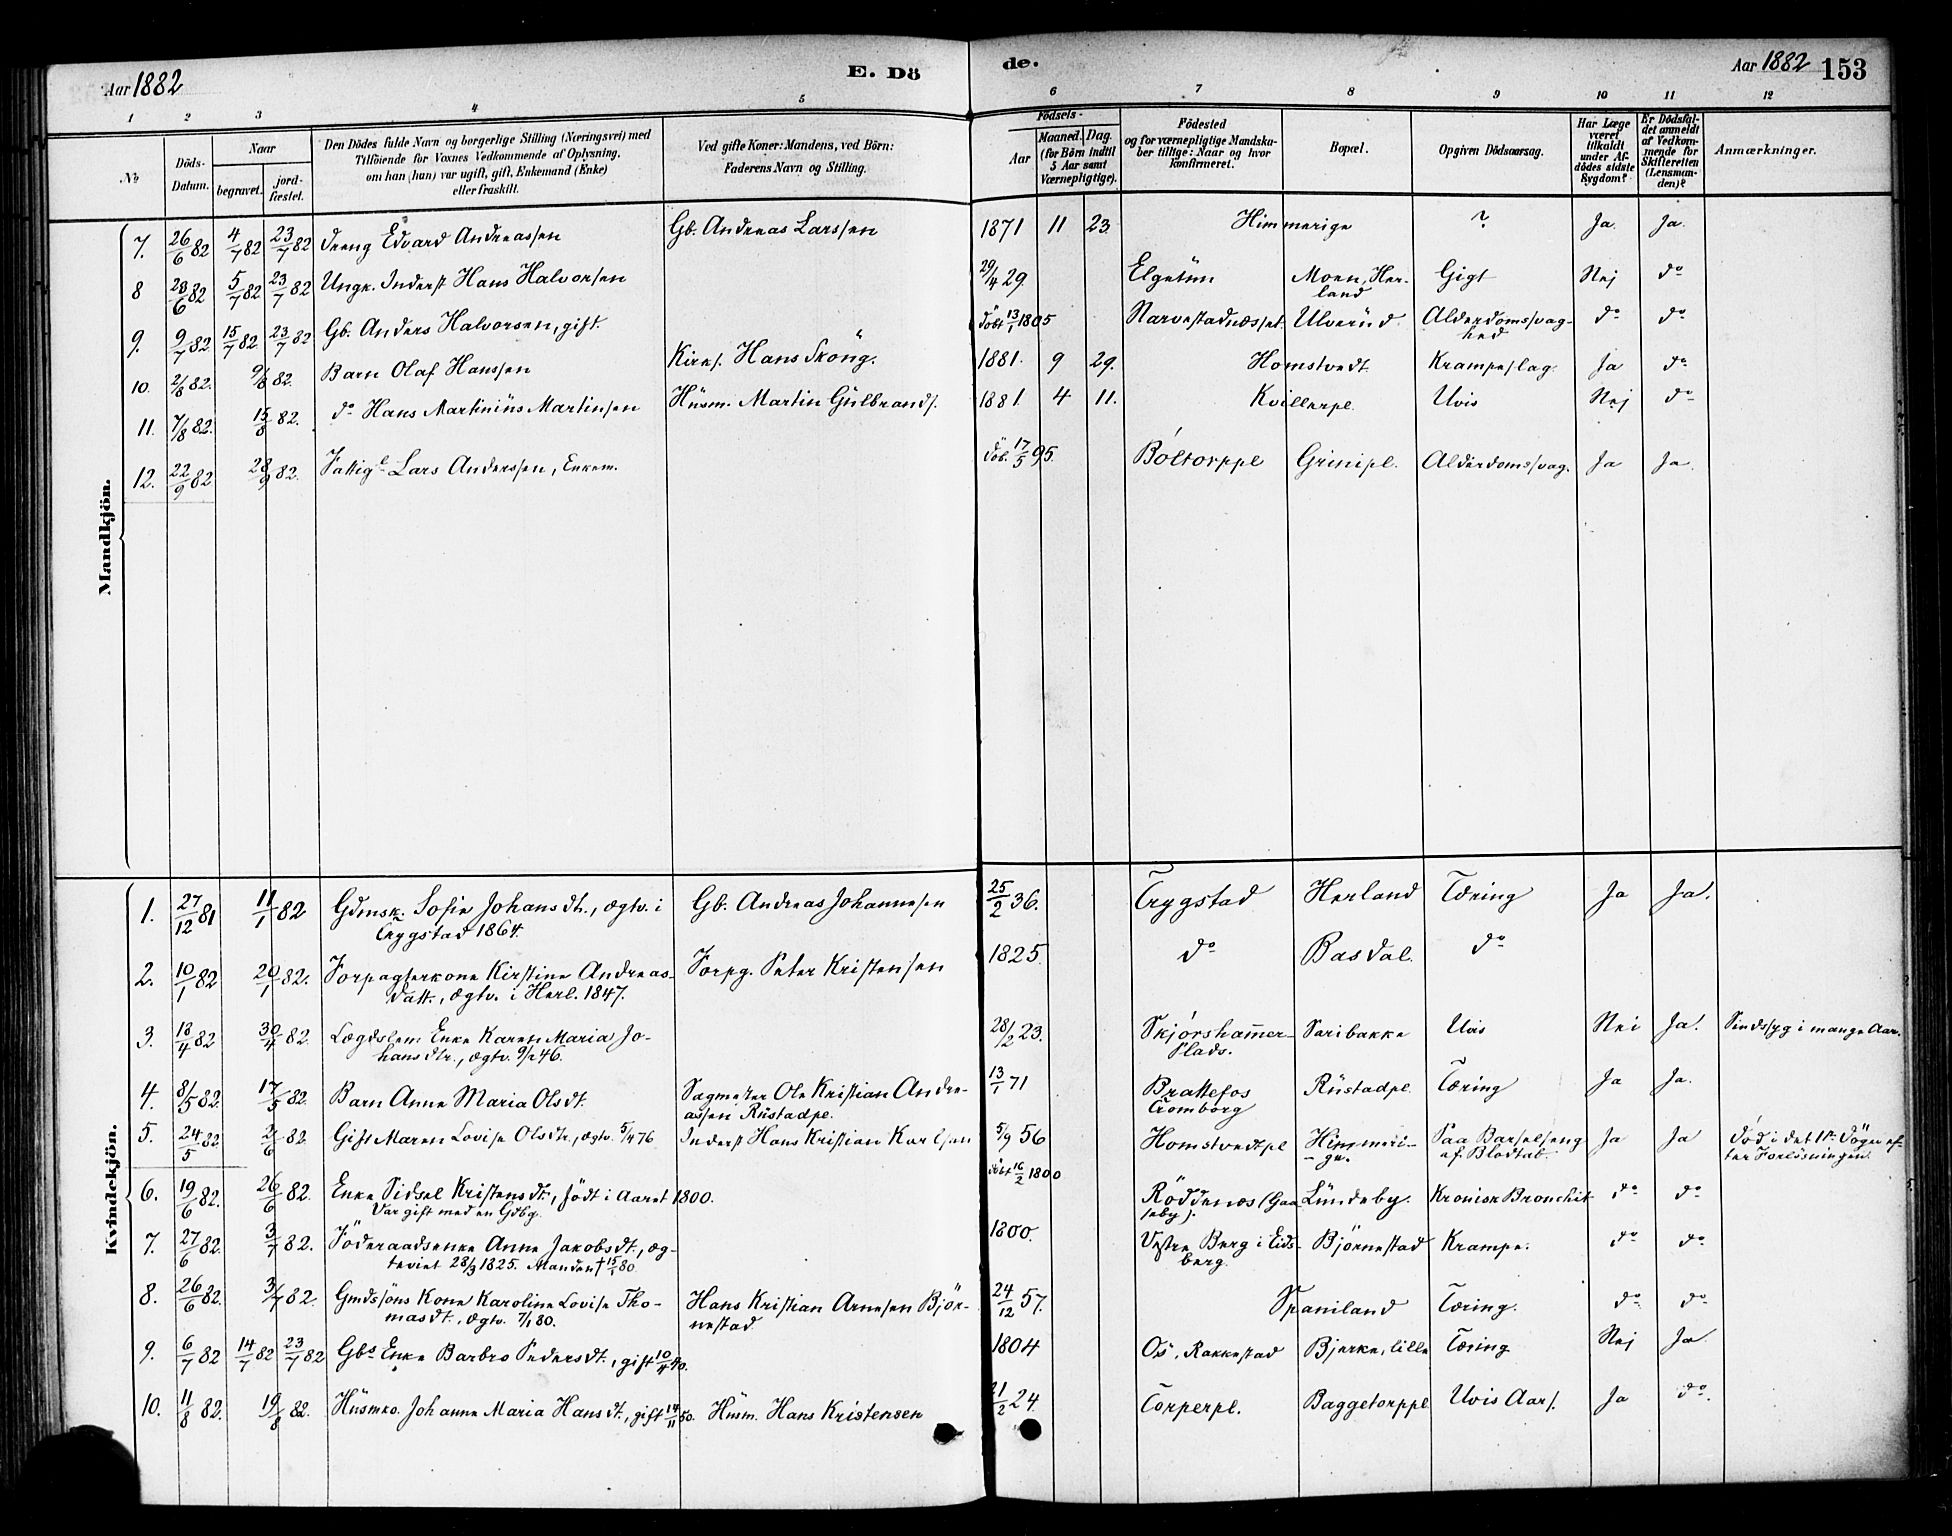 Aar 1882 E. Dö
de. Aar 1882 153
1 2 3 4 5 6 7 8 9 10 11 12
No
Döds-Datum.
Naar
begravet.
jord-fæstet.
Den Dödes fulde Navn og borgerlige Stilling (Næringsvei) med
Tilföiende for Voxnes Vedkommende af Oplysning,
om han (hun) var ugift, gift, Enkemand (Enke)
eller fraskilt.
Ved gifte Koner: Mandens, ved Börn:
Faderens Navn og Stilling.
Födsels-
Aar
Maaned. Dag.
(for Börn indtil
5 Aar samt
Værnepligtige).
Födested
og for værnepligtige Mandska-
ber tillige: Naar og hvor
konfirmeret.
Bopæl.
Opgiven Dödsaarsag.
Har Læge
været
tilkaldt
under Af-
dödes sidste
Sygdom?
Er Dödsfal-
det anmeldt
af Vedkom-
mende for
Skifteretten
(Lensman-
den)?
Anmærkninger.
Mandkjön.
7. 26/6 82 4/7 82 23/7 82 Dreng Edvard Andreassen Gb. Andreas Larssen 1871 11 23. Himmerige ? Ja. Ja.
8 28/6 82 5/7 82 23/7 82 Ungk. Inderst Hans Halvorsen 29/4 29. Elgetun Moen, Her-
land Gigt Nej do
9. 9/7 82 15/7 82 23/7 82 Gb. Anders Halvorsen, gift. döbt 13/1 1805 Narvestadnæsset Ulverud Alderdomssvag-
hed do do
10. 2/8 82. 9/8 82. Barn Olaf Hanssen Kirks. Hans Skoug. 1881. 9 29. Homstvedt Krampeslag. Ja do
11. 7/8 82. 15/8 82. do Hans Martinius Martinsen Husm. Martin Gulbrands. 1881. 4 11. Kvillerpl. Uvis Nej do
12. 22/9 82 28/9 82. Fattigl. Lars Anderssen, Enkem. döb. 17/5 95. Böltorppl Grinipl. Alderdomssvag. Ja Ja.
Kvindekjön.
1. 27/12 81 11/1 82 Gdmsk. Sofie Johansdtr., ægtv. i
Trygstad 1864. Gb. Andreas Johannesen 25/2 36. Trygstad Herland Tæring Ja Ja.
2. 10/1 82 20/1 82. Forpagterkone Kirstine Andreas-
datt., ægtv. i Herl. 1847. Forpg. Peter Kristensen 1825. do Basdal. do
3. 18/4 82 30/4 82. Lægdslem Enke Karen Maria Jo-
hansdtr., ægtv. 9/2 46. 28/2 23. Skjørshammer-
Plads. Saribakke Uvis Nei Ja. Sindssyg i mange Aar.
4. 8/5 82. 17/5 82. Barn Anne Maria Olsdt. Sagmester Ole Kristian Andre-
assen Rustadpl. 13/1 71 Brattefos
Tromborg Rustadpl. Tæring Ja Ja.
5. 24/5 82 2/6 82. Gift Maren Lovise Olsdtr., ægtv. 5/4 76 Inderst Hans Kristian Karlsen 5/9 56 Homstvedtpl Himmeri-
ge. Paa Barselseng
af Blodtab. Ja Ja Død i det 1ste Døgn ef-
ter Forløsningen.
6. 19/6 82. 26/6 82. Enke Sidsel Kristensdt., født i Aaret 1800.
Var gift med en Gdbg. döbt 16/2 1800 Röddenæs (Gaa
seby). Lundeby. Kronisk Bronchit do do
7. 27/6 82. 3/7 82. Föderaadsenke Anne Jakobsdt., æg-
teviet 28/3 1825. Manden † 15/1 80. 1800. Vestre Berg i Eids-
berg. Bjørnestad Krampe. do do
8. 26/6 82. 3/7 82. Gmdssöns Kone Karoline Lovise Tho-
masdt., ægtv. 7/1 80. Hans Kristian Arnesen Bjør-
nestad 24/12 57. Spaniland Tæring. do do
9. 6/7 82 14/7 82 23/7 82 Gbs Enke Barbro Pedersdt., gift 10/4 40. 1804 Os, Rakkestad Bjerke, lille Tæring Nej Ja.
10. 11/8 82. 19/8 82. Husmko. Johanne Maria Hansdt., gift 14/11 50. Husm. Hans Kristensen 21/2 24. Torperpl. Baggetorppl Uvis Aars. Ja do.